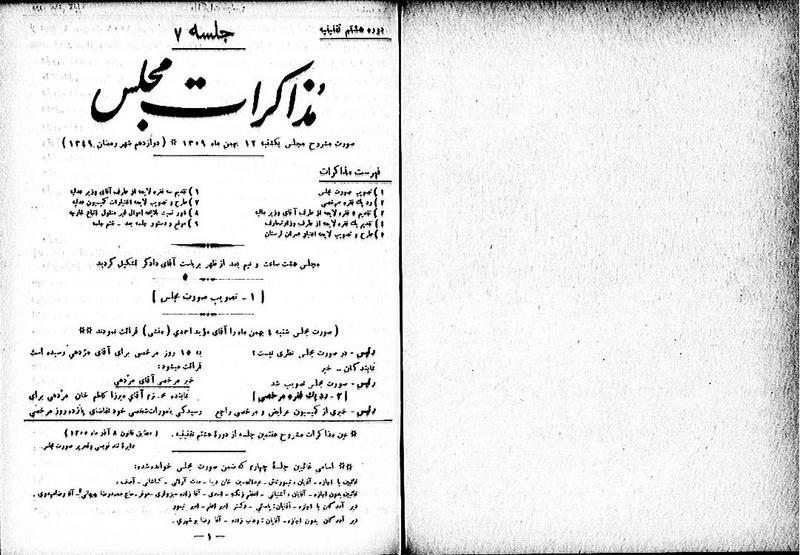 دوره هشتم تقنینیه
جلسه ۷
مذاکرات مجلس
صورت مشروح مجلس یکشنبه ۱۲ بهمن ماه ۱۳۰۹ * (دوازدهم شهر رمضان ۱۳۴۹)
فهرست مذاکرات
۱) تصویب صورت مجلس
۲) رد یک فقره مرخصی
۳) تقدیم ۵ فقره لایحه از طرف آقای وزیر مالیه
۴) تقدیم یک فقره لایحه از طرف وزیر معارف
۵) طرح و تصویب لایحه اعتبار عمران لرستان
۶) تقدیم سه فقره لایحه از طرف آقای وزیر عدلیه
۷) طرح و تصویب لایحه اختیارات کمیسیون عدلیه
۸) شور نسبت بلایحه اموال غیر منقول اتباع خارجه
۹) موقع و دستور جلسه بعد - ختم جلسه
مجلس هشت ساعت و نیم بعد از ظهر بریاست آقای دادگر تشکیل گردید
[۱ - تصویب صورت مجلس]
(صورت مجلس شنبه ٤ بهمن ماه را آقای مؤید احمدی (منشی) قرائت نمودند **
رئیس - در صورت مجلس نظری نیست؟
نمایندگان - خیر
رئیس - صورت مجلس تصویب شد
[۲ - رد یک فقره مرخصی]
رئیس - خبری از کمیسیون عرایض و مرخصی راجع
به ۱۵ روز مرخصی برای آقای مژدهی رسیده است
قرائت میشود:
خبر مرخصی آقای مژدهی
نماینده محترم آقای میرزا کاظم خان مژدهی برای
رسیدگی بامورات شخصی خود تقاضای پانزده روز مرخصی
* عین مذاکرات مشروح هفتمین جلسه از دوره هشتم تقنینیه. (مطابق قانون ۸ آذر ماه ۱۳۰۵)
دایره تند نویسی و تحریر صورت مجلس
** اسامی غائبین جلسه چهارم که ضمن صورت مجلس خوانده شده:
غائبین با اجازه - آقایان: تیمورتاش - عبدالحسین خان دیبا - کاشانی - آصف
غائبین بدون اجازه - آقایان: آشتیانی - اعظم زنگنه - اسدی - آقا زاده سبزواری
دیر آمدگان با اجازه - آقایان: یاسائی - دکتر
دیر آمدگان بدون اجازه - آقایان: وهاب زاده - آقا رضا بوشهری
— ۱ —